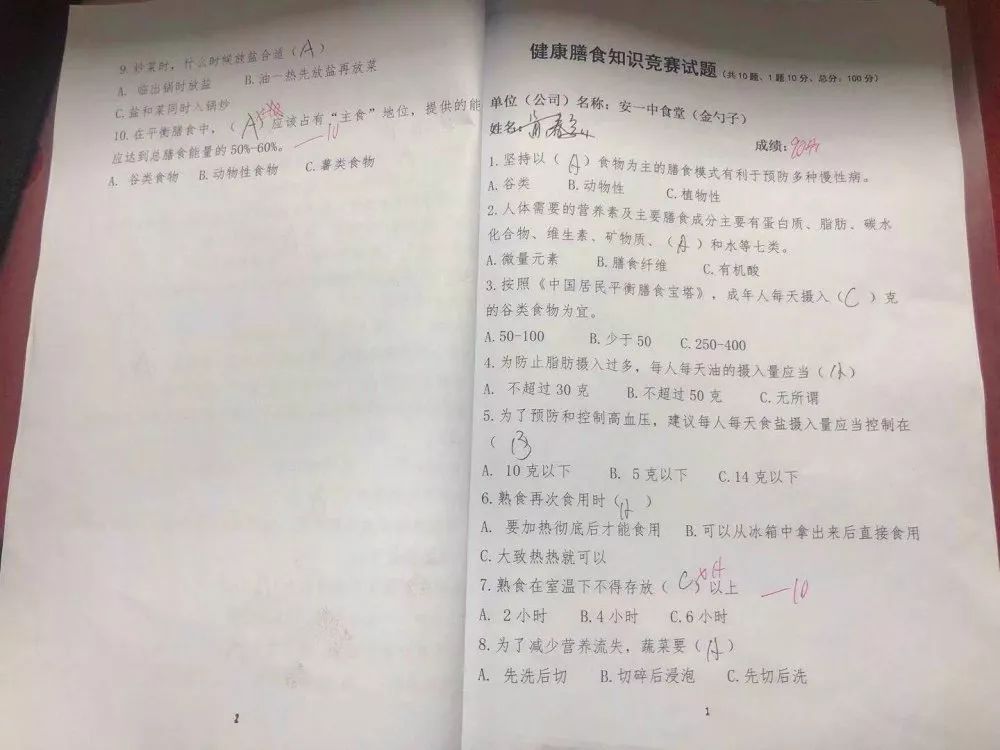 健康膳食知识竞赛试题(共10题、1题10分、总分:100分)
单位(公司)名称:安一中食堂(金勺子)
姓名:
成绩:90分
1.坚持以(A)食物为主的膳食模式有利于预防多种慢性病。
A.谷类 B.动物性 C.植物性
2.人体需要的营养素及主要膳食成分主要有蛋白质、脂肪、碳水
化合物、维生素、矿物质、(A)和水等七类。
A.微量元素 B.膳食纤维 C.有机酸
3.按照《中国居民平衡膳食宝塔》,成年人每天摄入(C)克
的谷类食物为宜。
A.50-100 B.少于50 C.250-400
4.为防止脂肪摄入过多,每人每天油的摄入量应当(A)
A. 不超过30克 B.不超过50克 C.无所谓
5.为了预防和控制高血压,建议每人每天食盐摄入量应当控制在
(B)
A. 10克以下 B. 5克以下 C.14克以下
6.熟食再次食用时(A)
A. 要加热彻底后才能食用 B.可以从冰箱中拿出来后直接食用
C.大致热热就可以
7.熟食在室温下不得存放(C)×A以上 —10
A. 2小时 B.4小时 C.6小时
8.为了减少营养流失,蔬菜要(A)
A. 先洗后切 B.切碎后浸泡 C.先切后洗
1
9.炒菜时,什么时候放盐合适(A)
A. 临出锅时放盐 B.油一热先放盐再放菜
C.盐和菜同时入锅炒
10.在平衡膳食中,(A)应该占有“主食”地位,提供的能
—10
应达到总膳食能量的50%-60%。
A. 谷类食物 B.动物性食物 C.薯类食物
2